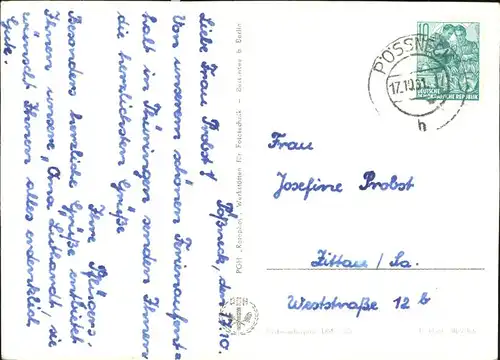 Pößneck, den 17.10.
Liebe Frau Probst!
Von unserem schönen Ferienaufent=
halt in Thüringen senden Ihnen
die herzlichsten Grüße
Ihre Pflügers.
Besonders herzliche Grüße entbietet
Ihnen unsere „Oma Luthardt“, sie
wünscht Ihnen alles erdenklich
Gute.
PGH „Rotophot“, Werkstätten für Fototechnik
b Berlin
10
DEUTSCHE
DEMOKRATISCHE REPUBLIK
PÖSSNECK
17.10.61
h
Frau
Josefine Probst
Zittau / Sa.
Weststraße 12 b